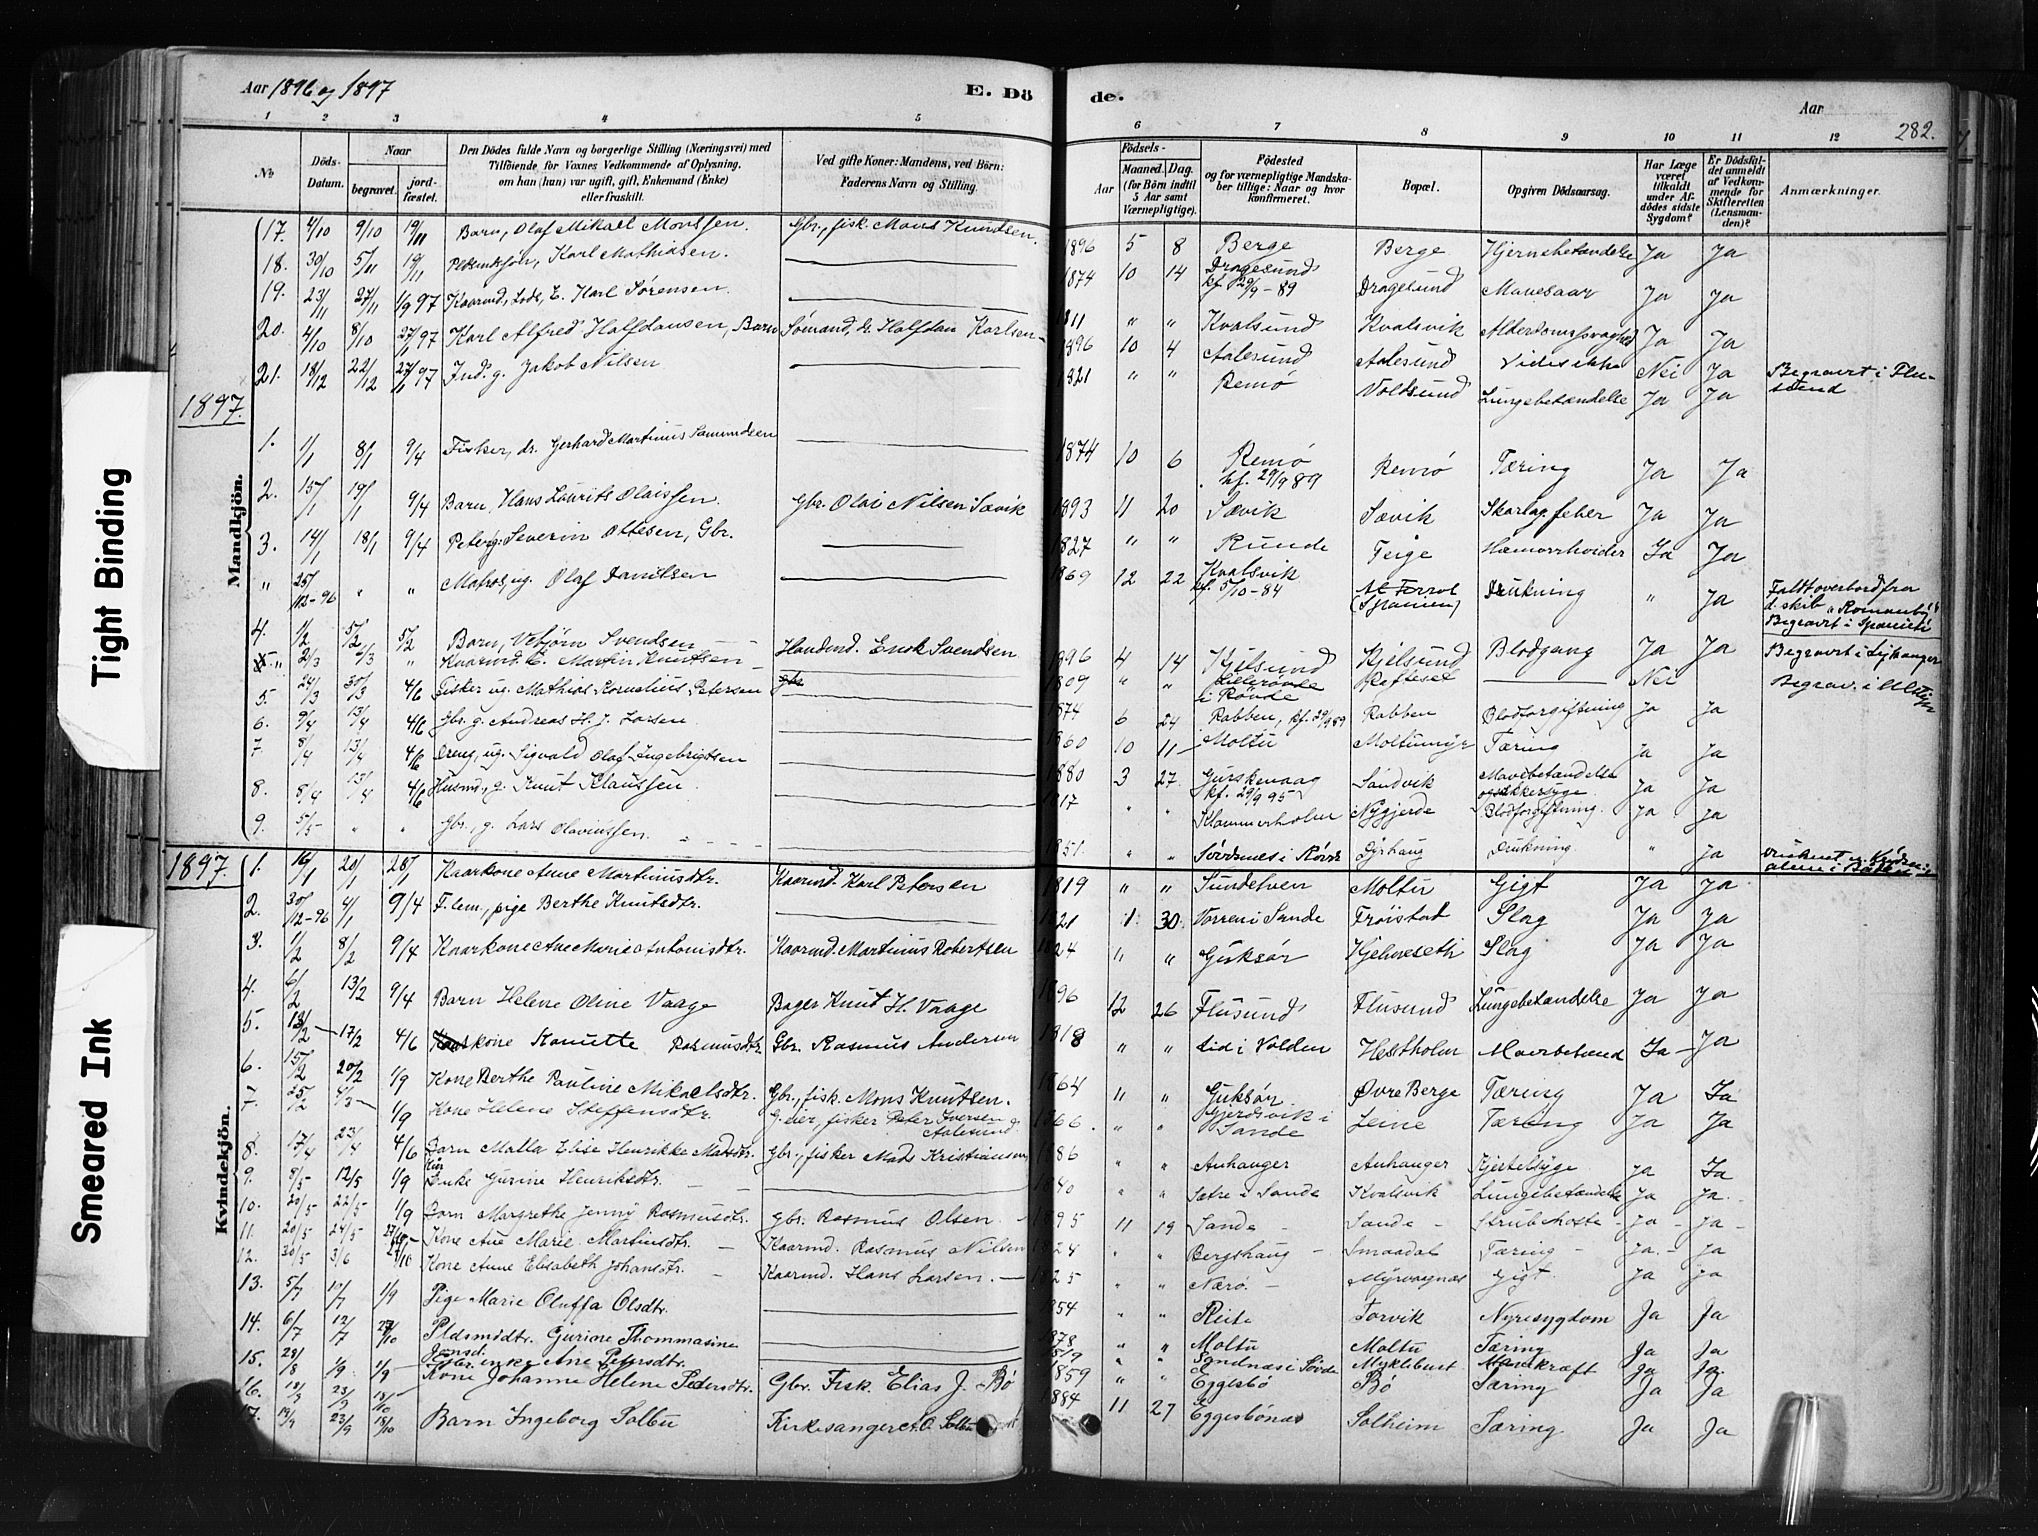 Aar 1896 og 1897
E. Dö
de.
Aar
282.
1 2 3 4 5 6 7 8 9 10 11 12
No
Döds-Datum.
Naar
begravet.
jord-fæstet.
Den Dödes fulde Navn og borgerlige Stilling (Næringsvei) med Tilföiende for Voxnes Vedkommende af Oplysning, om han (hun) var ugift, gift, Enkemand (Enke) eller fraskilt.
Ved gifte Koner: Mandens, ved Börn: Faderens Navn og Stilling.
Födsels-
Aar
Maaned.
Dag.
(for Börn indtil 5 Aar samt Værnepligtige).
Födested og for værnepligtige Mandska-ber tillige: Naar og hvor konfirmeret.
Bopæl.
Opgiven Dödsaarsag.
Har Læge været tilkaldt under Af-dödes sidste Sygdom?
Er Dödsfal-det anmeldt af Vedkom-mende for Skifteretten (Lensman-den)?
Anmærkninger.
17. 4/10 9/10 19/11 Barn, Olaf Mikael Monssen. Gbr., fisk. Mons Knudsen. 1896 5 8 Berge Berge Hjernebetændelse Ja Ja
18. 30/10 5/11 19/11 Karl Mathiasen. 1874 10 14 Dragesund kf. 29/9-89 Dragesund Mavesaar Ja Ja
19. 23/11 27/11 1/9 97 Kaarmd, Lods, E. Karl Sørensen. 1811 " " Kvalsund Kvalsvik Alderdomssvaghed Ja Ja
20. 4/10 8/10 27/1 97 Karl Alfred Halfdansen, Barn Sømand, dr. Halfdan Karlsen 1896 10 4 Aalesund Aalesund Vides ikke Nei Ja Begravet i Flusund
21. 18/12 22/12 27/1 97 Ind. g. Jakob Nilsen 1821 " " Remø Voldsund Lungebetændelse Ja Ja
1897.
Mandkjön.
1. 1/1 8/1 9/4 Fisker, dr. Gerhard Martinus Samundsen 1874 10 6 Remø kf. 29/9 89 Remø Tæring Ja Ja
2. 15/1 19/1 9/4 Barn, Hans Laurits Olaissen. Gbr. Olai Nilsen Sævik 1893 11 20 Sævik Sævik Skarlagsfeber Ja Ja
3. 14/1 18/1 9/4 Severin Ottesen, Gbr. 1827 " " Runde Teige Hæmorrhoider Ja Ja
" 25/12-96 " " Matros, ug. Olaf Danilsen 1869 12 22 Kvalsvik kf. 5/10-84 At Ferrol (Spanien) Drukning " Ja Faldt overbord fra d. skib Begravet i Spanien
4. 1/2 5/2 5/2 Barn, Vebjørn Svendsen Husmd. Enok Svendsen 1896 4 14 Kjelsund Kjelsund Blodgang Ja Ja
" 2/3 /3 " Kaarmd. E. Martin Knutsen 1809 " " Lillerønde i Rønde Rafteset Nei
5. 24/3 30/3 4/6 Fisker ug. Mathias Kornelius Petersen 1874 6 24 Rabben, kf. 29/9 89 Rabben Blodforgiftning Ja Ja
6. 9/4 13/4 4/6 Gbr. g. Andreas H. J. Larsen 1860 10 11 Moltu Moltumyr Tæring Ja Ja
7. 8/4 13/4 4/6 Dreng, ug. Sigvald Olaf Ingebrigtsen 1880 3 27 Gurskevaag kf. 29/9 95 Sandvik Mavebetændelse og sukkersyge Ja Ja
8. 8/4 13/4 4/6 Husmd., g. Knut Klaussen 1817 " " Klammerholm Nygjerde Blodforgiftning. Ja Ja
9. 5/5 " " Gbr., g. Lars Olaviussen. 1851 " " Søvdsnes i Røvde Dyrhaug Drukning " Ja
1897.
Kvindekjön.
1. 16/1 20/1 28/1 Kaarkone Anne Martinusdtr. Kaarmd. Karl Petersen 1819 " " Sundelven Moltu Gigt Ja Ja
2. 30/12-96 4/1 9/4 F. lem, pige Berthe Knutsdtr. 1821 1 30 Vorren i Sande Frøistad Slag Ja Ja
3. 1/2 8/2 9/4 Kaarkone Ane Marie Antonisdtr. Kaarmd. Martinus Robertsen 1824 " " Gurskør Hjelmeseth Slag Ja Ja
4. 6/2 13/2 9/4 Barn Helene Oline Vaage Bager Knut H. Vaage 1896 12 26 Flusund Flusund Lungebetændelse Ja Ja
5. 13/2 17/2 4/6 kone Kanutte Rasmusdtr. Gbr. Rasmus Andersen 1818 " " Lid i Volden Hestholm Mavebetænd Ja Ja
6. 15/2 20/2 1/9 Kone Berthe Pauline Mikaelsdtr. Gbr., fisk. Mons Knutsen. 1864 " " Gurskør. Øvre Berge Tæring Ja Ja
7. 25/2 4/3 1/9 Kone Helene Steffensdtr. G. eier, fisker Peter Iversen Aalesund. 1866 " " Gjerdsvik i Sande Leine Tæring Ja Ja
8. 17/4 23/4 4/6 Barn Malla Elise Henrikke Madsdtr. Gbr., fisker Mads Kristiansen 1886 " " Aurhanger Aurhanger Kjertelsyge Ja Ja
9. 8/5 12/5 1/9 Enke Gurine Henriksdtr. 1840 " " Sætre i Sande Kvalsvik Lungebetændelse Ja Ja
10. 20/5 22/5 1/9 Barn Margrethe Jenny Rasmusdtr. Gbr. Rasmus Olsen. 1895 11 19 Sande Sande Strubehoste Ja Ja
11. 20/5 24/5 27/10 Kone Ane Marie Martinsdtr. Kaarmd. Rasmus Nilsen 1824 " " Bergshaug Smaadal Tæring Ja Ja
12. 30/5 3/6 27/10 Kone Anne Elisabeth Johansdtr. Kaarmd. Hans Larsen. 1825 " " Nærø. Myrvaagnes Gigt. Ja Ja
13. 5/7 10/7 1/9 Pige Marie Oluffa Olsdtr. 1854 " " Reite Torvik Nyresygdom Ja Ja
14. 6/7 12/7 27/10 Pldsmdtr. Gurine Thommasine Jensd. 1878 Moltu Moltu Tæring Ja Ja
15. 28/8 1/9 1/9 Gbr. enke Ane Petersdtr. 1819 " " Myklebust Mavekræft Ja Ja
16. 18/9 23/9 18/10 Kone Johanne Helene Pedersdtr. Gbr. Fisk. Elias J. Bø 1859 " " Eggesbø Bø Tæring Ja Ja
17. 19/9 23/9 18/10 Barn Ingeborg Solbu Kirkesanger O. Solbu 1884 11 27 Eggesbønæs Solheim Tæring. Ja Ja
Tight Binding
Smeared Ink